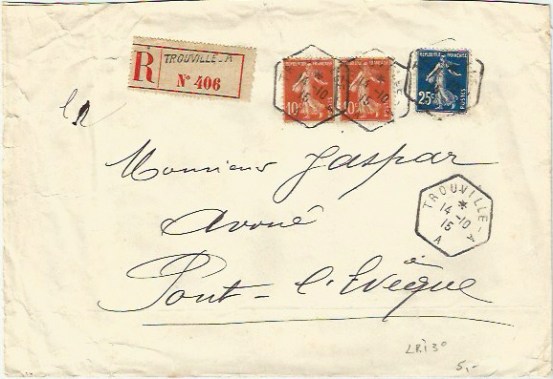 R TROUVILLE-A
Nº 406
REPUBLIQUE FRANÇAISE
10c
10c
25c
POSTES
Monsieur Gaspar
Avoué
à
Pont-l'Evêque
TROUVILLE-A
*
14-10
15
A
5,-